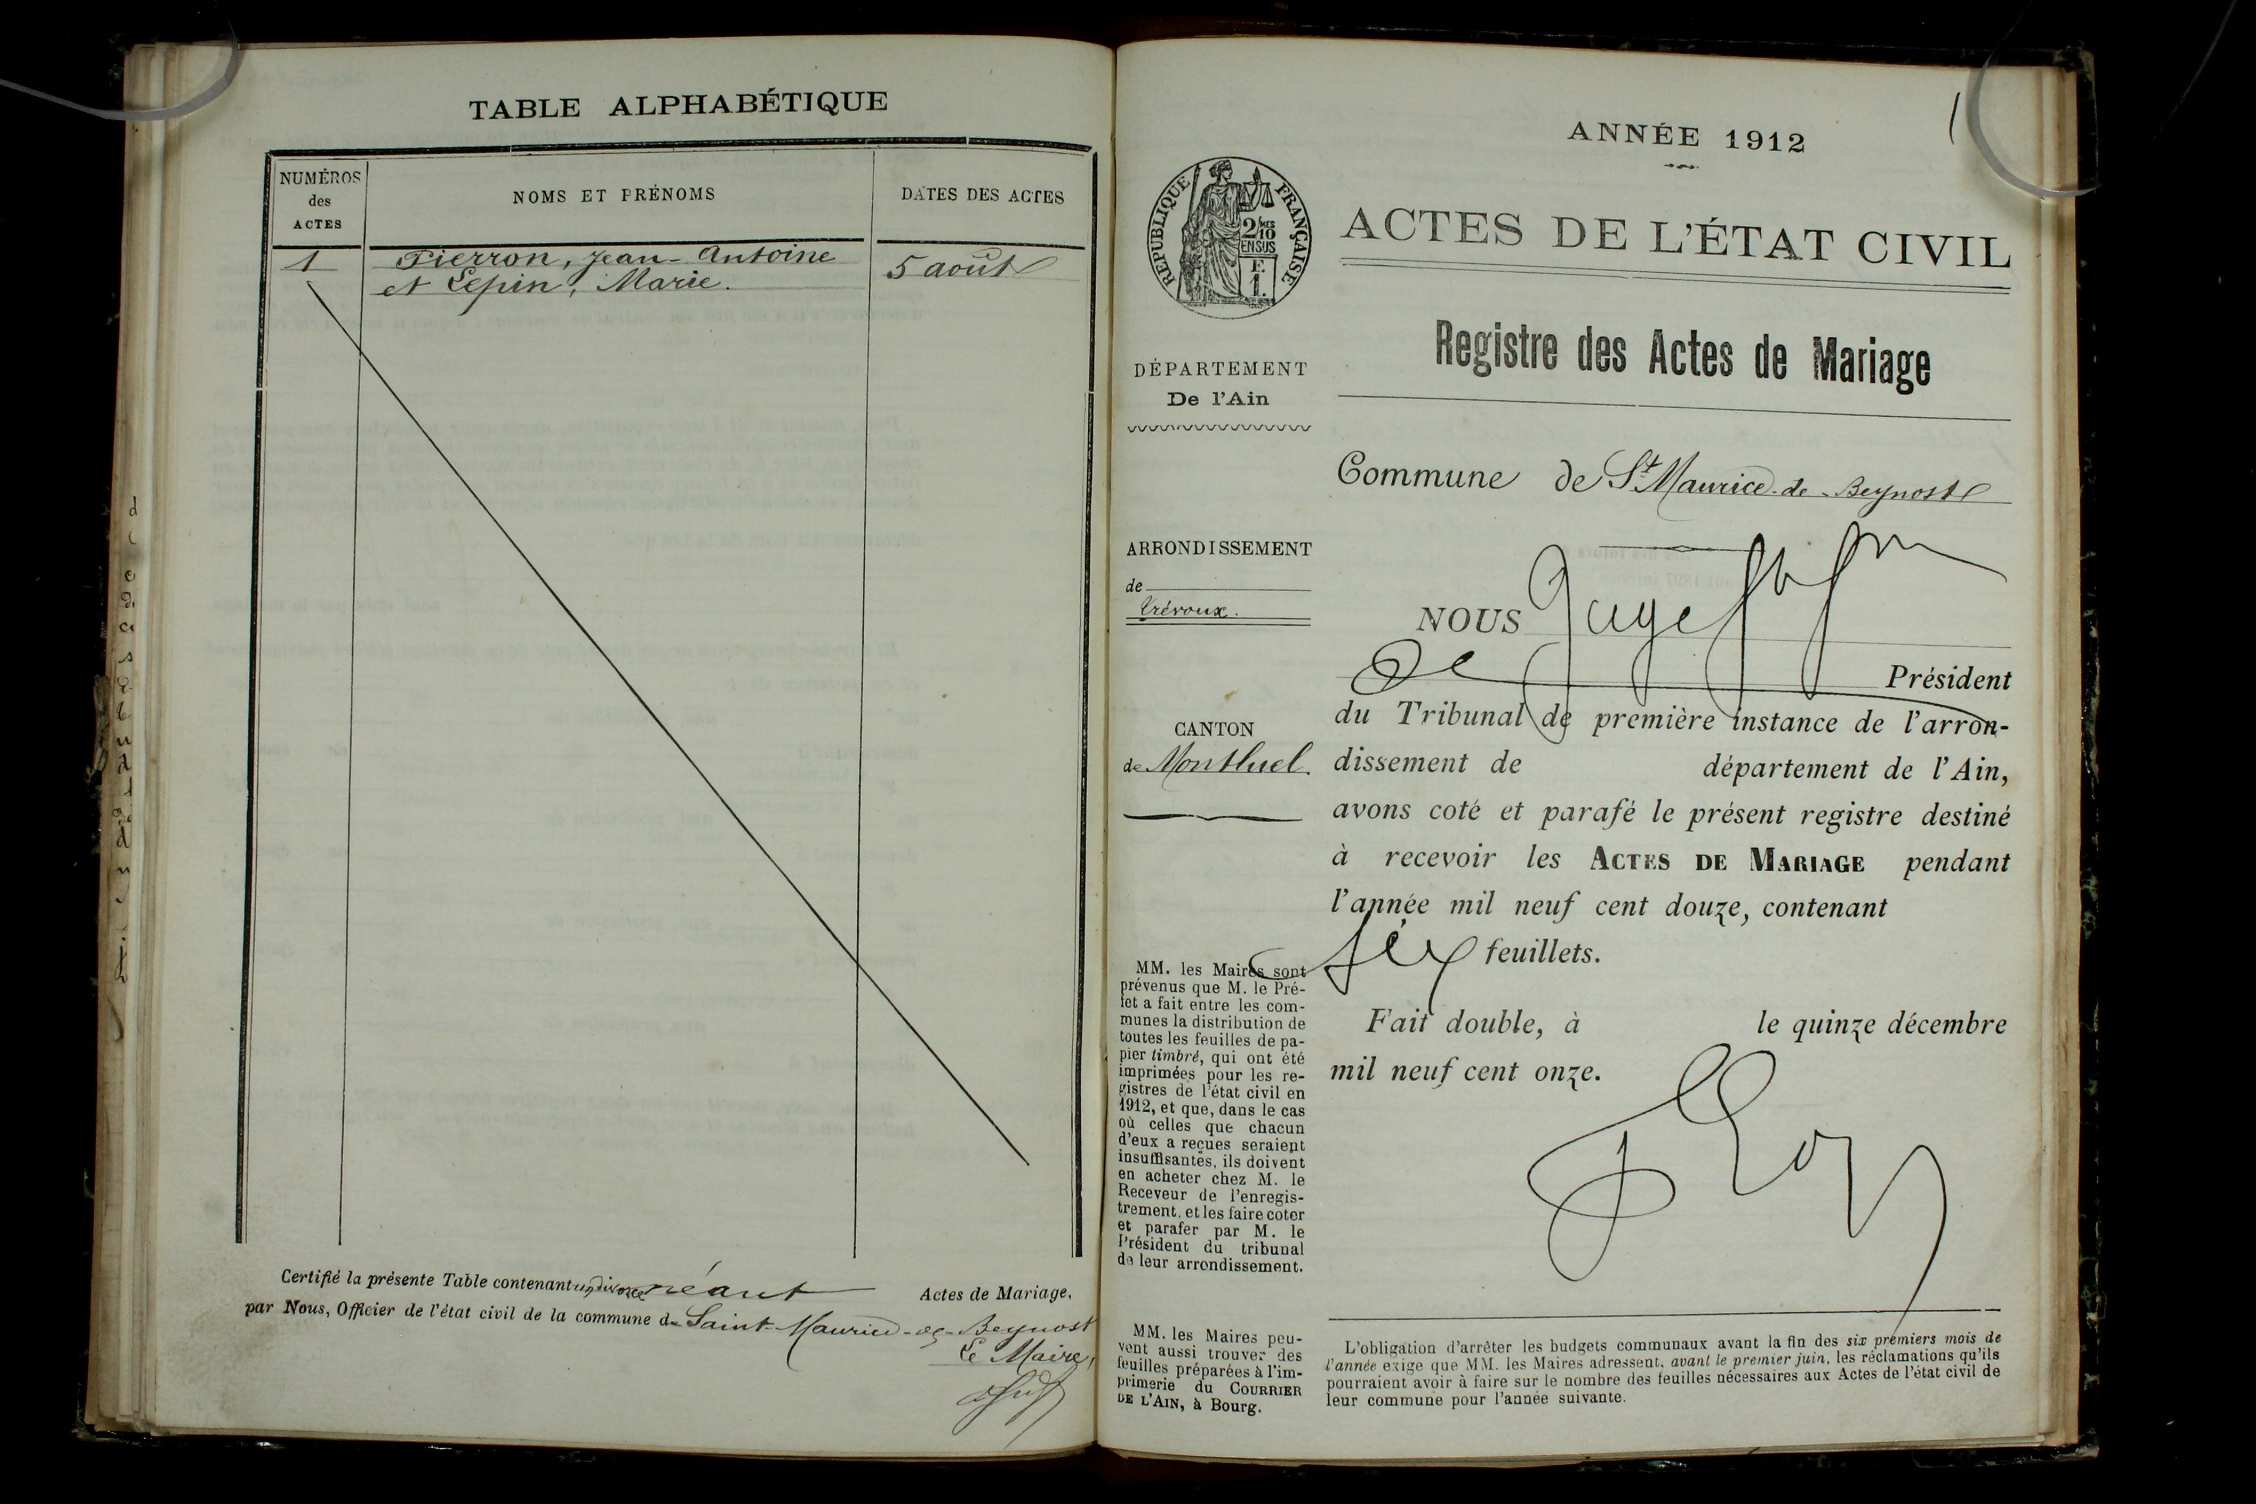 TABLE ALPHABÉTIQUE
NUMÉROS
des
ACTES
NOMS ET PRÉNOMS
DATES DES ACTES
1
Pierron, Jean-Antoine
et Lepin, Marie.
5 août
Certifié la présente Table contenant un divorce néant Actes de Mariage,
par Nous, Officier de l'état civil de la commune de Saint-Maurice-de-Beynost
Le Maire,
1
ANNÉE 1912
RÉPUBLIQUE FRANÇAISE
2 fres
10
EN SUS
F.
1.
ACTES DE L'ÉTAT CIVIL
Registre des Actes de Mariage
DÉPARTEMENT
De l'Ain
Commune de St Maurice-de-Beynost
ARRONDISSEMENT
de
Trévoux.
CANTON
de Montluel.
NOUS Juge
de Président
du Tribunal de première instance de l'arron-
dissement de département de l'Ain,
avons coté et parafé le présent registre destiné
à recevoir les ACTES DE MARIAGE pendant
l'année mil neuf cent douze, contenant
six feuillets.
Fait double, à le quinze décembre
mil neuf cent onze.
MM. les Maires sont
prévenus que M. le Pré-
fet a fait entre les com-
munes la distribution de
toutes les feuilles de pa-
pier timbré, qui ont été
imprimées pour les re-
gistres de l'état civil en
1912, et que, dans le cas
où celles que chacun
d'eux a reçues seraient
insuffisantes, ils doivent
en acheter chez M. le
Receveur de l'enregis-
trement, et les faire coter
et parafer par M. le
Président du tribunal
de leur arrondissement.
MM. les Maires peu-
vent aussi trouver des
feuilles préparées à l'im-
primerie du COURRIER
DE L'AIN, à Bourg.
L'obligation d'arrêter les budgets communaux avant la fin des six premiers mois de
l'année exige que MM. les Maires adressent, avant le premier juin, les réclamations qu'ils
pourraient avoir à faire sur le nombre des feuilles nécessaires aux Actes de l'état civil de
leur commune pour l'année suivante.